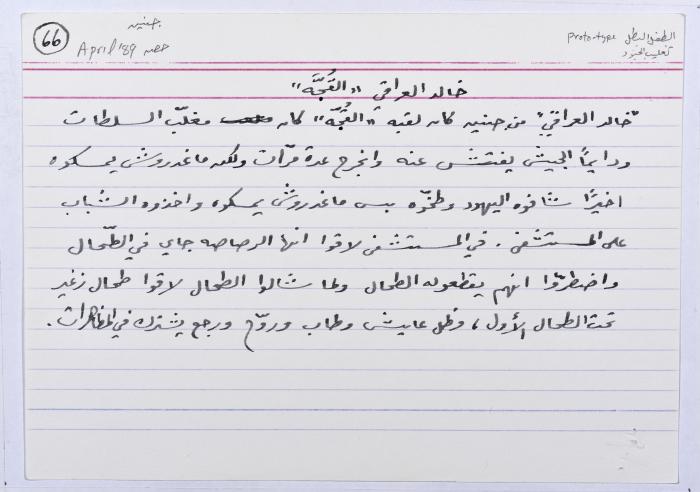 66
جنين
April '89 حصه
prototype الطفل البطل
تغليب الجنود
خالد العراقي "العُجَّه"
"خالد العراقي" من جنين كان لقبه "العُجّه" كان مغلّب السلطات
ودايماً الجيش يفتش عنه وانجرح عدة مرّات ولكن ما قدروش يمسكوه
اخيراً شافوه اليهود وطخّوه بس ما قدروش يمسكوه واخذوه الشباب
على المستشفى. في المستشفى لاقوا انها الرصاصه جاي في الطّحال
واضطرّوا انهم يقطعوله الطحال ولما شالوا الطحال لاقوا طحال زغير
تحت الطحال الأول، وظل عايش وطاب وروّح ورجع يشترك في المظاهرات.